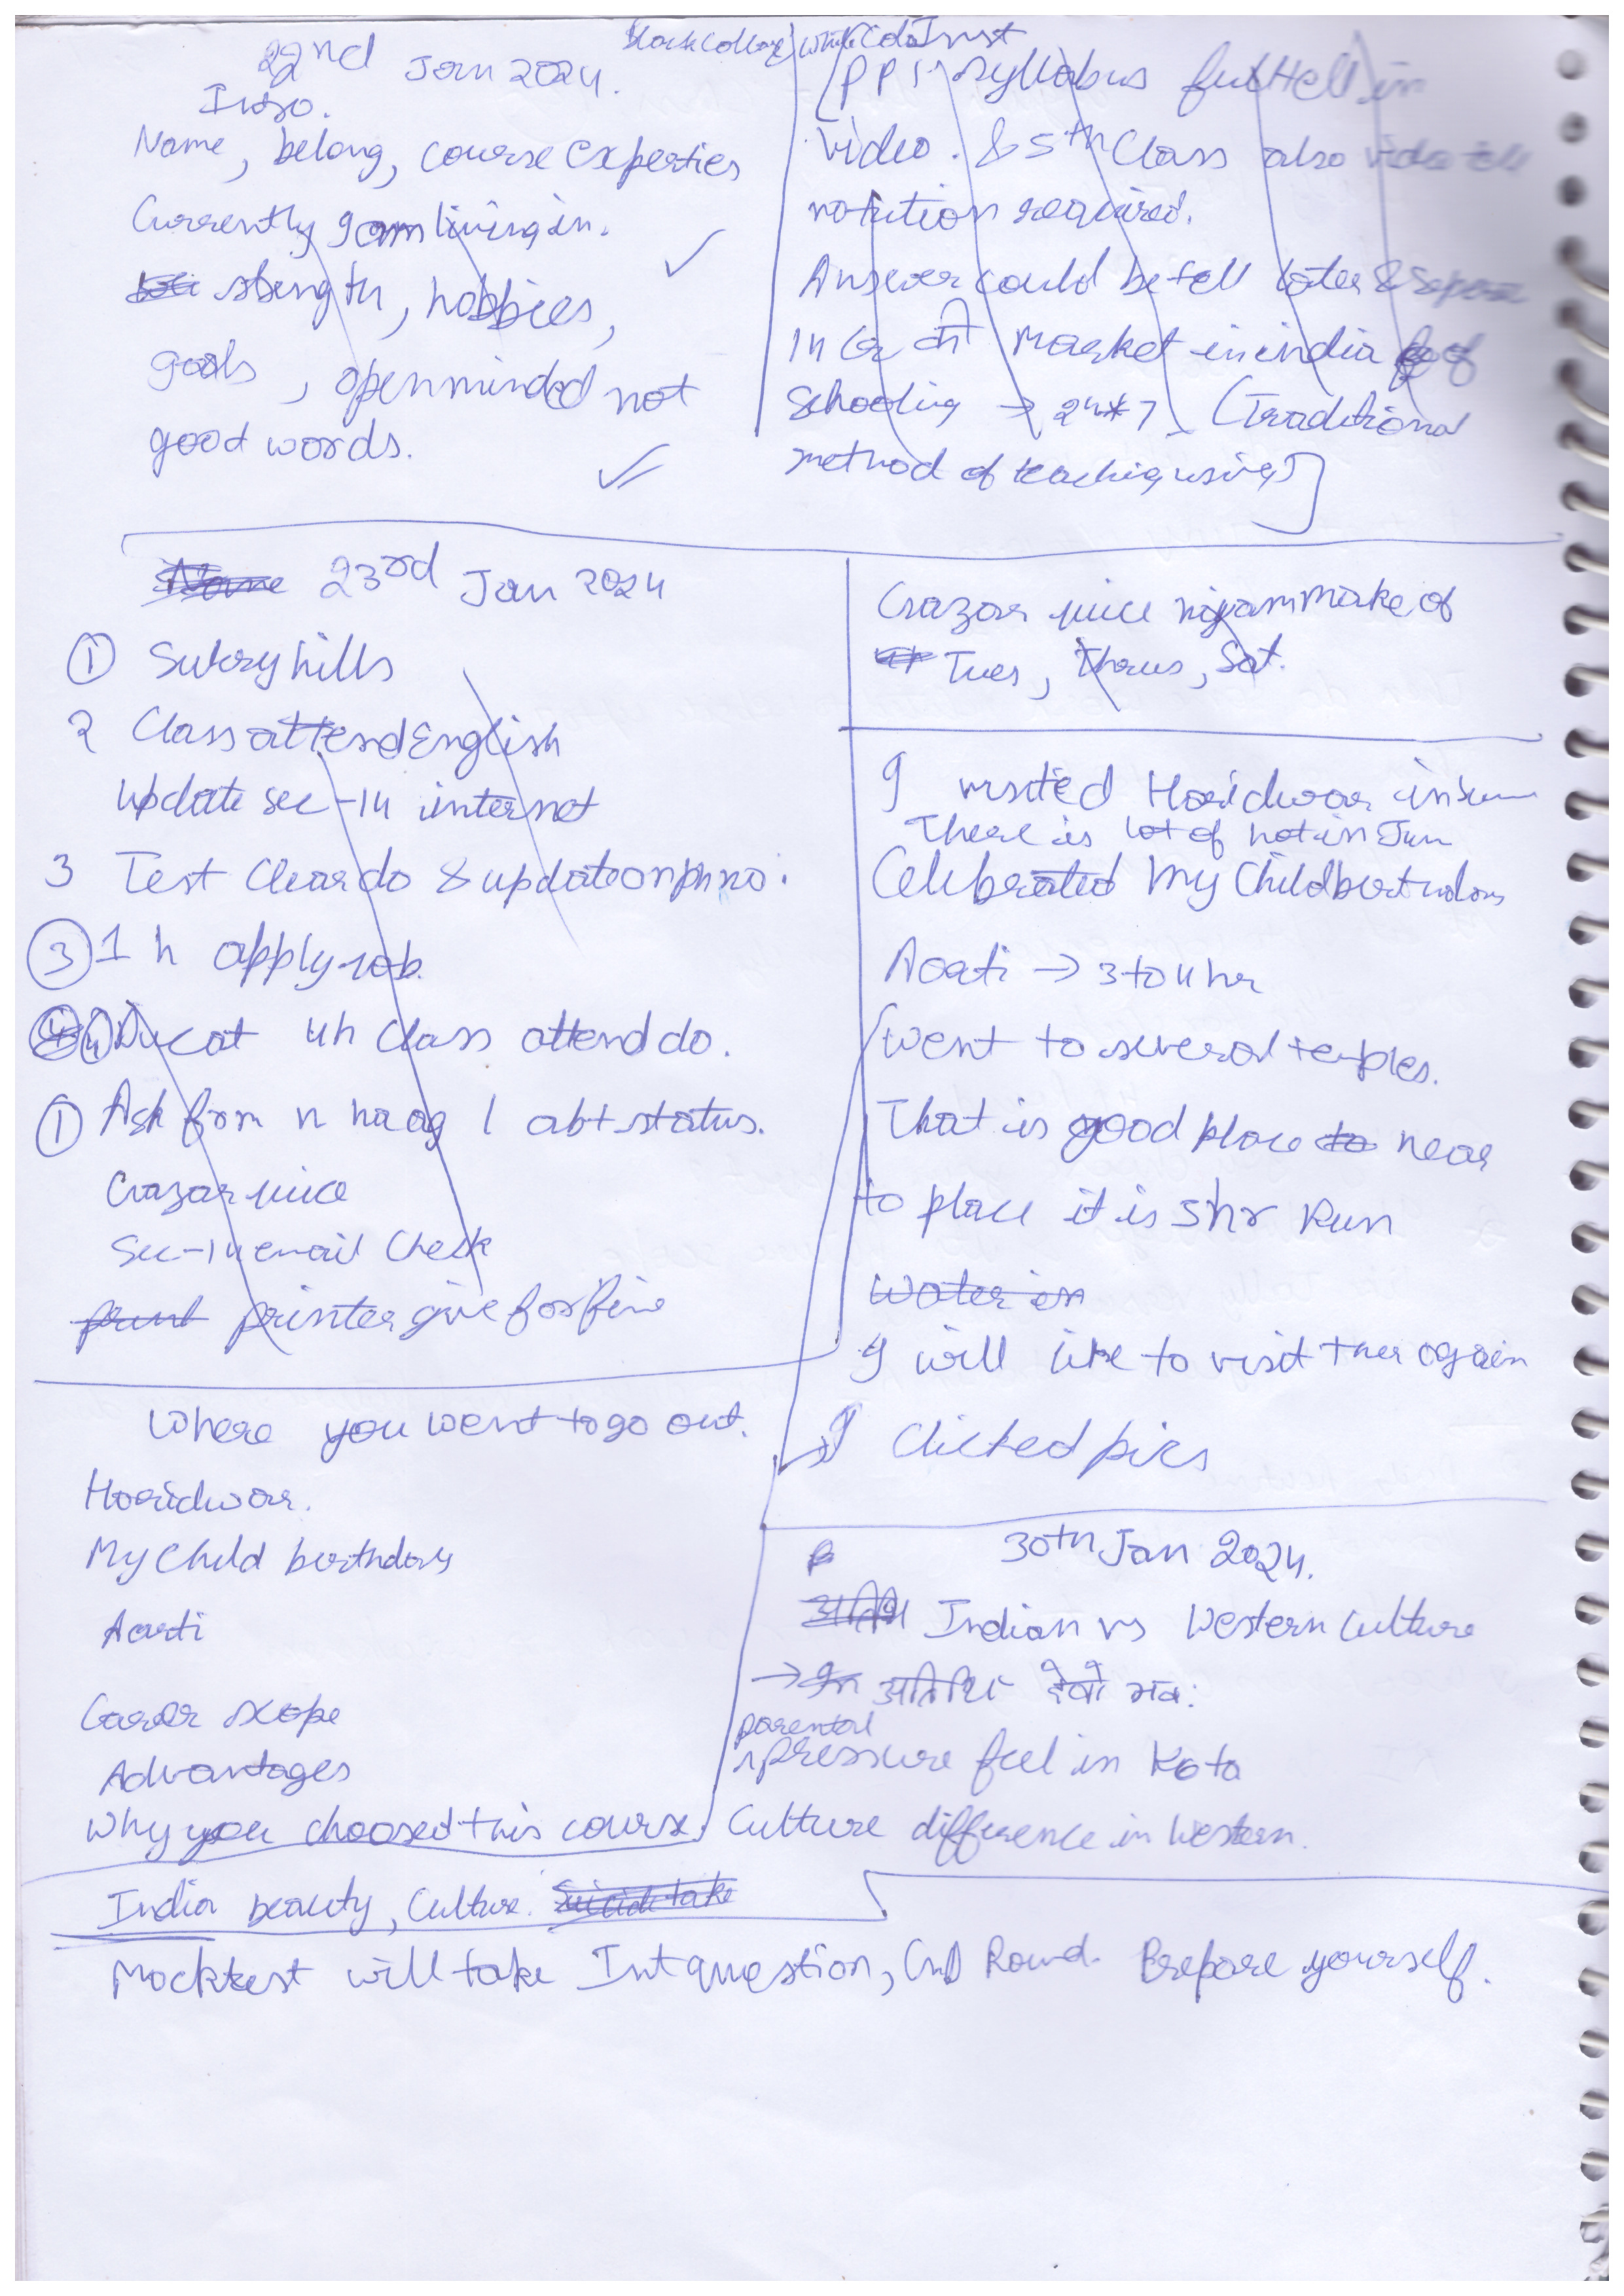 22nd Jan 2024.
Intro.
Name, belong, course experties
Currently I am living in.
strength, hobbies,
goals, open minded not
good words.
Black Collar White Cola Just
[PPT syllabus full tell in
video. & 5th Class also video tell
notution required.
Answer could be tell later &
14 Cr की market in india of
schooling → 24*7 (Traditional
method of teaching using)]
23rd Jan 2024
① Sukry hills
2 Class attend English
Update sec-14 internet
3 Test Clear do & update on ph no.
③ 1 h apply job.
④ Ducat 4h Class attend do.
① Ask from abt status.
Gazar juice
Sec-14 email Check
printer give for fine
Gazar juice make of
Tues, Thrus, Sat.
I visited Haridwar in
There is lot of hot in Jun
Celebrated My Child birthday
Aarti → 3 to 4 hr
went to several temples.
That is good place near
to place it is 5hr Run
Water in
I will like to visit ther again
I Clicked pics
Where you went to go out.
Haridwar.
My Child birthday
Aarti
Career scope
Advantages
Why you choosed this course.
30th Jan 2024.
Indian vs Western Culture
→ अतिथि देवो भव:
parental
pressure feel in Kota
Culture difference in Western.
India beauty, Culture. Suicide take
Mocktest will take Int question, GD Round. Prepare yourself.